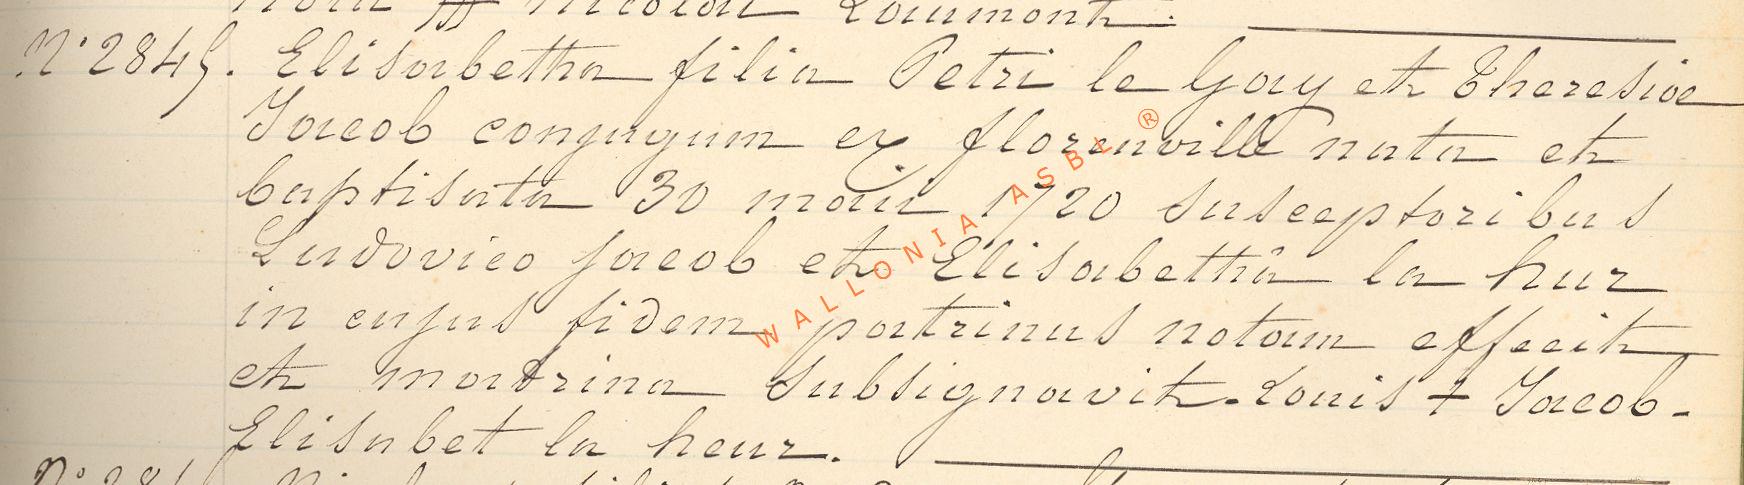 Nicolai Laumont.
N° 2845. Elisabetha filia Petri le Gay et Theresiae
Jacob conjugum ex florenville nata et
baptisata 30 maii 1720 susceptoribus
Ludovico Jacob et Elisabethâ la hur
in cujus fidem patrinus notam effecit
et matrina subsignavit. Louis + Jacob.
Elisabet la heur.
WALLONIA ASBL ®